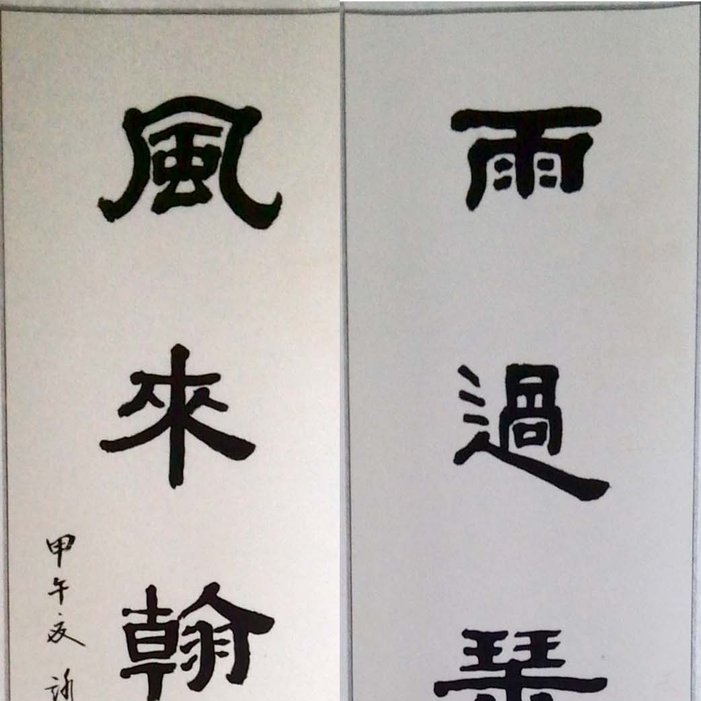 雨過琹
風來翰
甲午夏 詠